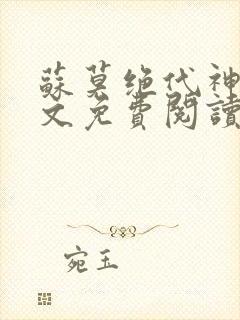 蘇莫绝代神
文免費閱讀
宛玉